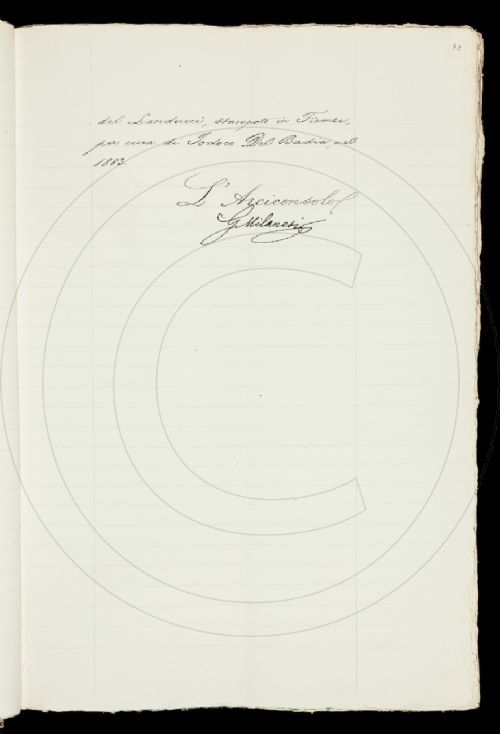 53
del Landucci, stampato in Firenze,
per cura di Jodoco Del Badia, nel
1883.
L'Arciconsolo
G Milanesi